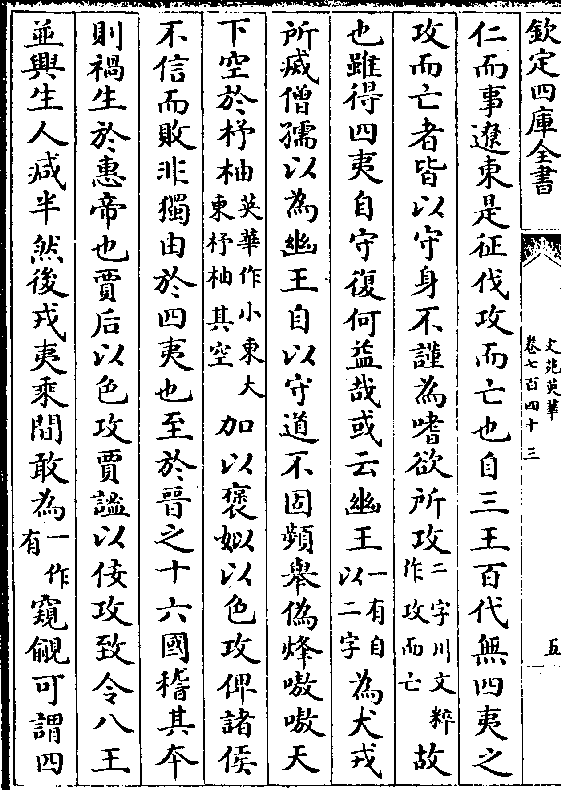 欽定四庫全書
文苑英華
卷七百四十三
五
仁而事遼東是征伐攻而亡也自三王百代無四夷之
攻而亡者皆以守身不謹為嗜欲所攻二字川文粹作攻而亡故
也雖得四夷自守復何益哉或云幽王一有自以二字為犬戎
所滅僧孺以為幽王自以守道不固頻舉偽烽嗷嗷天
下空於杼柚英華作小東大東杼柚其空加以褒姒以色攻俾諸侯
不信而敗非獨由於四夷也至於晉之十六國稽其本
則禍生於惠帝也賈后以色攻賈謐以佞攻致令八王
並興生人減半然後戎夷乘間敢為一作有窺覦可謂四